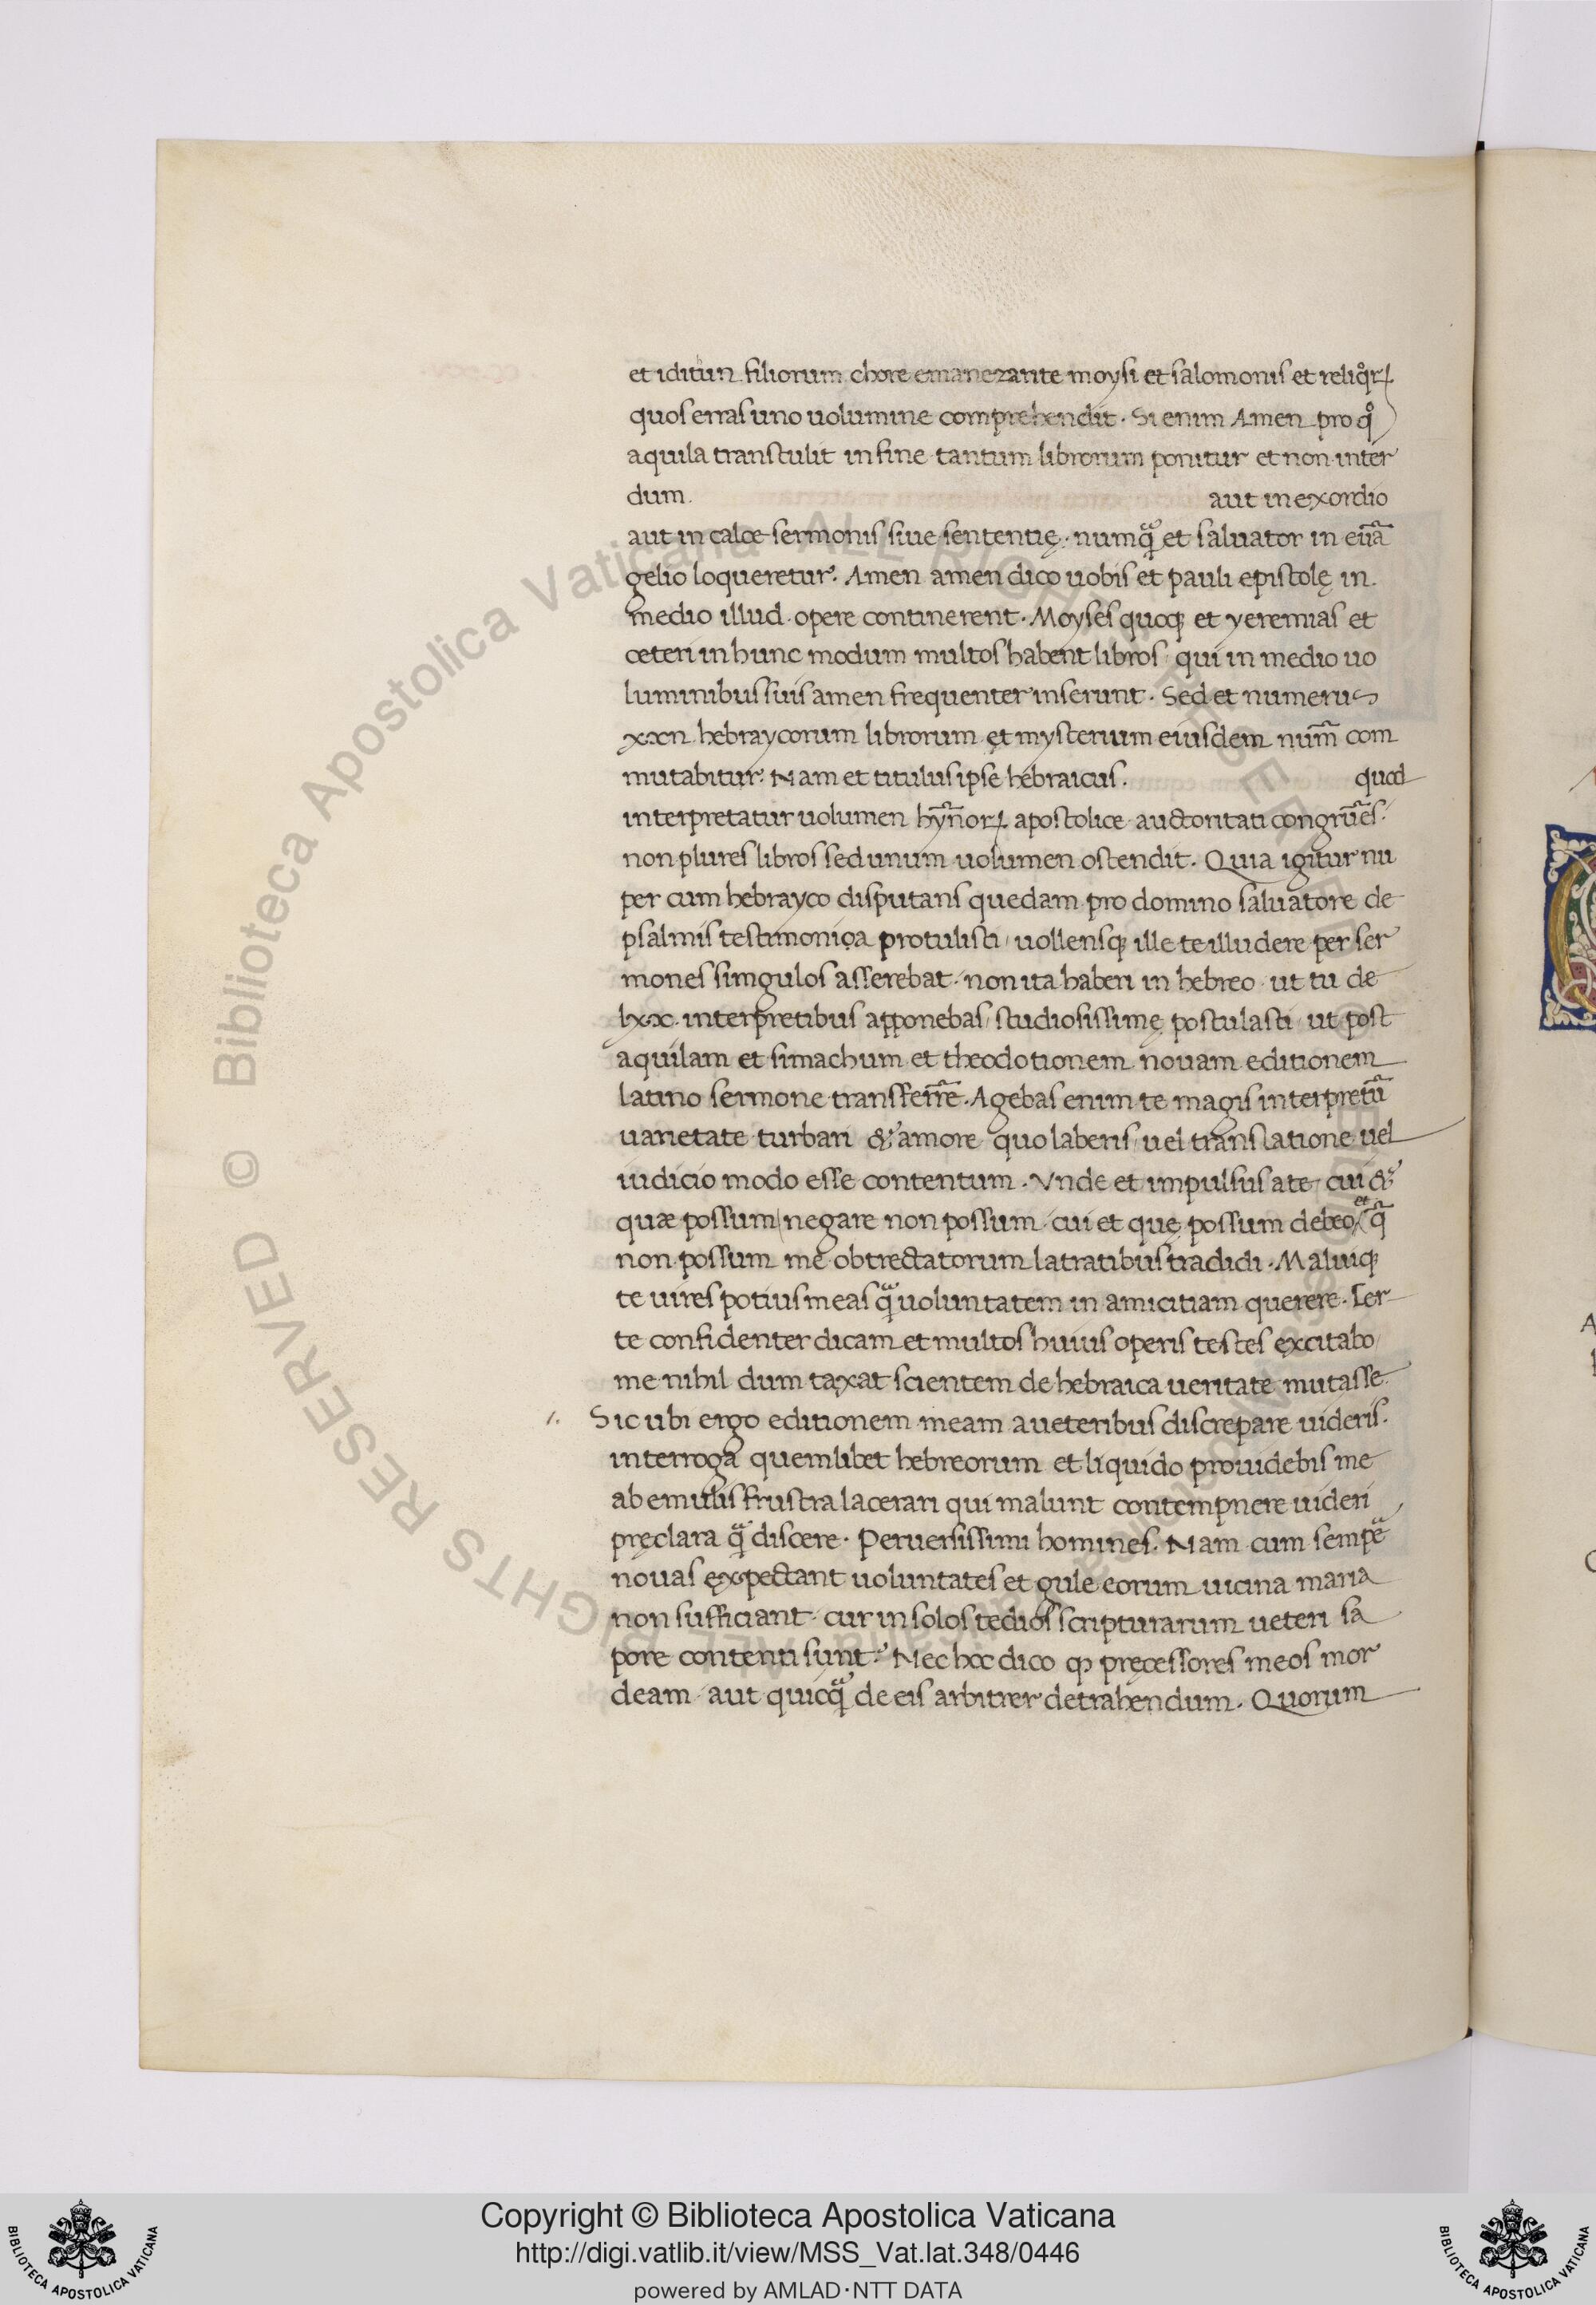 et iditun filiorum chore emanezarite moysi et salomonis et reliq̊rꝝ
quos erras uno uolumine comprehendit. Si enim Amen pro q̊
aquila transtulit in fine tantum librorum ponitur et non inter
dum. aut in exordio
aut in calce sermonis siue sententię. numq̃ et saluator in euã
gelio loqueretur. Amen amen dico uobis et pauli epistolę in
medio illud opere continerent. Moyses quoqꝫ et yeremias et
ceteri in hunc modum multos habent libros qui in medio uo
luminibus suis amen frequenter inserunt. Sed et numerus
xxii hebraycorum librorum et mysterium eiusdem num̃ com
mutabitur. Nam et titulus ipse hebraicus. quod
interpretatur uolumen hym̃norꝝ apostolice auctoritati congrũes.
non plures libros sed unum uolumen ostendit. Quia igitur nu
per cum hebrayco disputans quedam pro domino saluatore de
psalmis testimonia protulisti uollensqꝫ ille te illudere per ser
mones simgulos asserebat non ita haberi in hebreo ut tu de
lxx. interpretibus apponebas studiosissimę postulasti ut post
aquilam et simachum et theodotionem nouam editionem
latino sermone transferr̃e. Agebas enim te magis interpretũ
uarietate turbari & amore quo laberis uel translatione uel
iudicio modo esse contentum. Vnde et impulsus a te cui &
quæ possum negare non possum cui et quę possum debeo et q̃
non possum me obtrectatorum latratibus tradidi. Maluiqꝫ
te uires potius meas q̃ uoluntatem in amicitiam querere. Cer
te confidenter dicam et multos huius operis testes excitabo
me nihil dum taxat scientem de hebraica ueritate mutasse.
Sicubi ergo editionem meam a ueteribus discrepare uideris.
interroga quemlibet hebreorum et liquido prouidebis me
ab emulis frustra lacerari qui malunt contempnere uideri
pręclara q̃ discere. Peruersissimi homines. Nam cum sempẽ
nouas expectant uoluntates et gule eorum uicina maria
non sufficiant cur in solos tedios scripturarum ueteri sa
pore contenti sunt. Nec hoc dico ꝙ pręcessores meos mor
deam aut quicq̃ de eis arbitrer detrahendum. Quorum
© Biblioteca Apostolica Vaticana ALL RIGHTS RESERVED
© Biblioteca Apostolica Vaticana ALL RIGHTS RESERVED
Copyright © Biblioteca Apostolica Vaticana
http://digi.vatlib.it/view/MSS_Vat.lat.348/0446
powered by AMLAD·NTT DATA
BIBLIOTECA APOSTOLICA VATICANA
BIBLIOTECA APOSTOLICA VATICANA